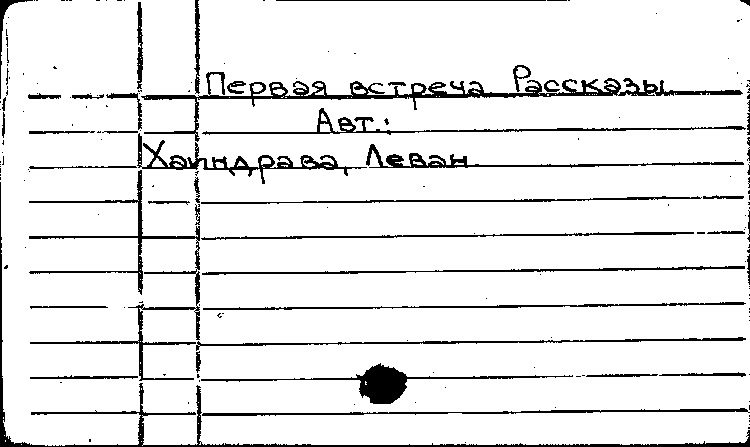 Первая встреча Рассказы
Авт.:
Хаиндрава, Леван